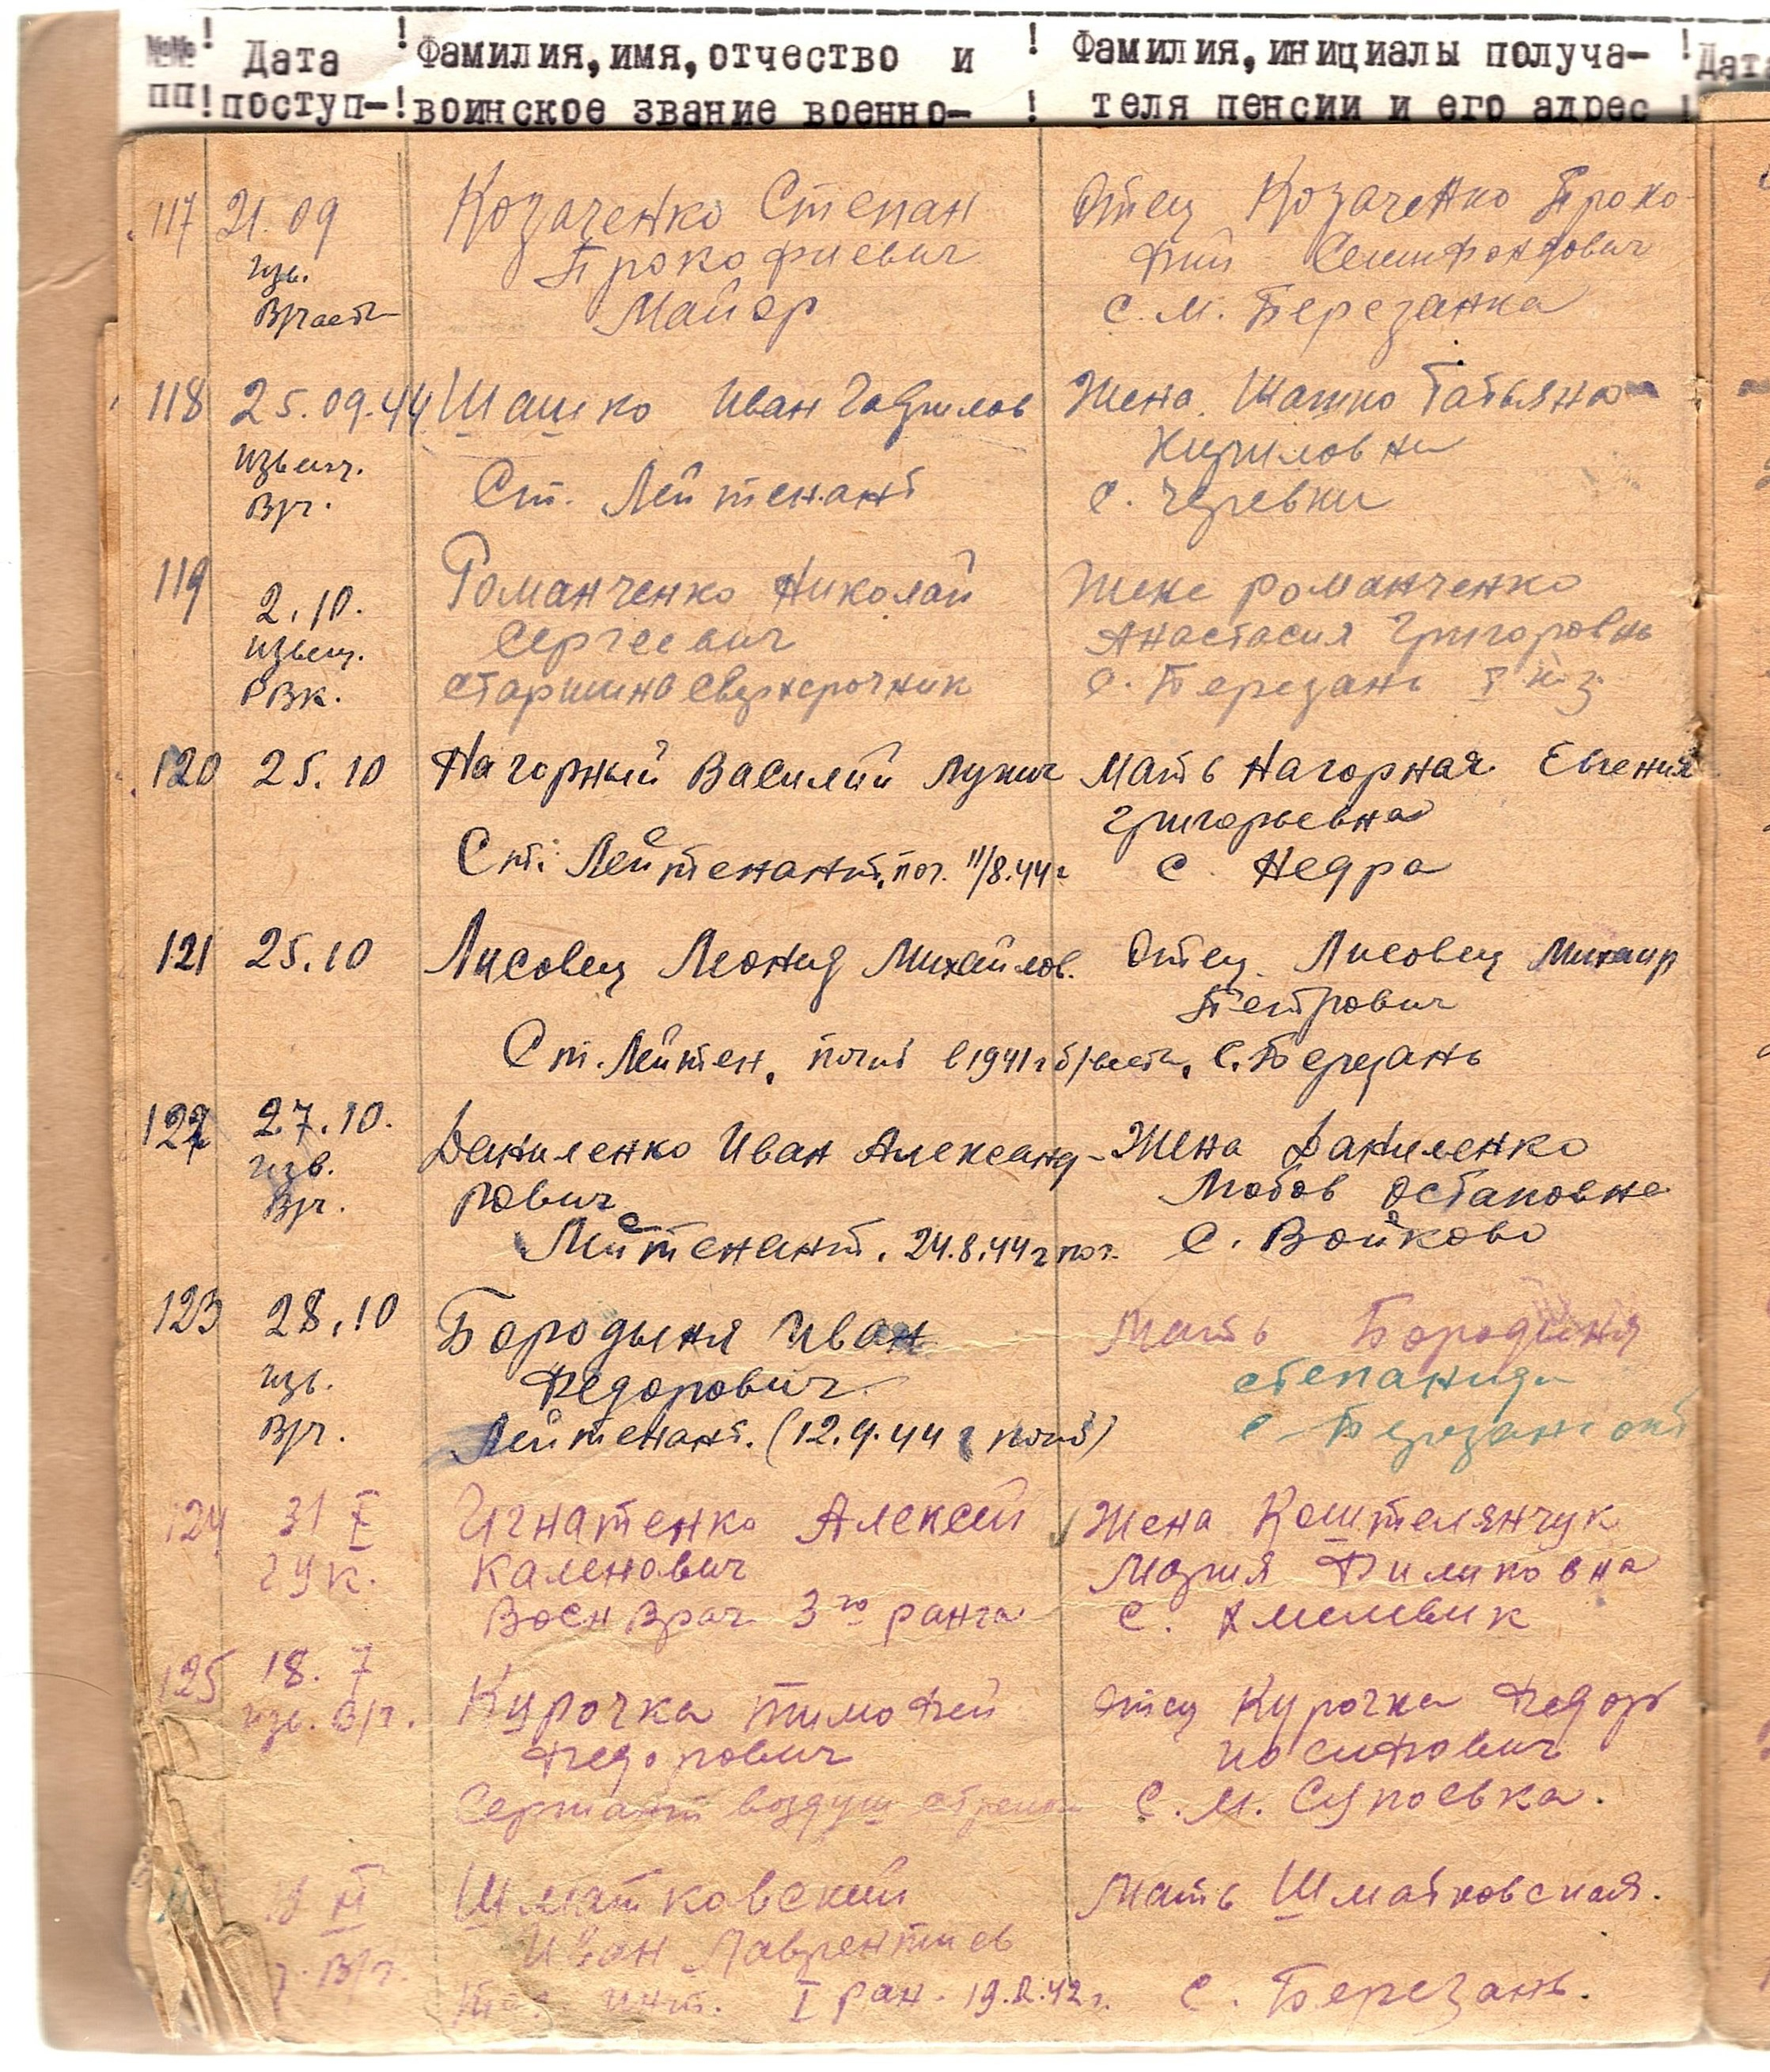 №№ ! Дата ! Фамилия, имя, отчество и ! Фамилия, инициалы получа- ! Дата
пп ! поступ- ! воинское звание военно- ! теля пенсии и его адрес !
117 21.09 Козаченко Степан Отец Козаченко Проко-
изв. Прокофиевич фий
Вручает Майор с. М. Березанка
118 25.09.44 Шашко Иван Гаврилов Жена Шашко Татьяна
извещ. Кириловна
вр. Ст. Лейтенант с. Черевки
119 Романченко Николай Жене Романченко
2.10. Сергеевич Анастасия Григоровна
извещ. старшина сверхсрочник с. Березань
РВК.
120 25.10 Нагорный Василий Лукич Мать Нагорная Евгения
Григорьевна
Ст. Лейтенант, пог. 11/8.44г с. Недра
121 25.10 Лисовец Леонид Михайлов. Отец Лисовец Михаил
Петрович
Ст. Лейтен. погиб в 1941г б/вести, с. Березань
122 27.10. Даниленко Иван Александ- Жена Даниленко
изв. рович Любов Остаповна
вр. Лейтенант. 24.8.44г пог. с. Войково
123 28.10 Бородыня Иван Мать Бородыня
изв. Федорович Степанида
вр. Лейтенант. (12.9.44г погиб) с. Березань
124 31 Игнатенко Алексей Жена Коштелянчук
ГУК. Каленович Мария Филиповна
Воен Врач 3го ранга с. Хмелевик
125 18. 7 Курочка Тимофей Отец Курочка Федор
изв. вр. Федорович Иосипович
Сержант воздуш стрелок с. М. Супоевка.
Шматковский Мать Шматковская.
Иван Лаврентиев
вр. инт. I ран. 19.2.42г. с. Березань.